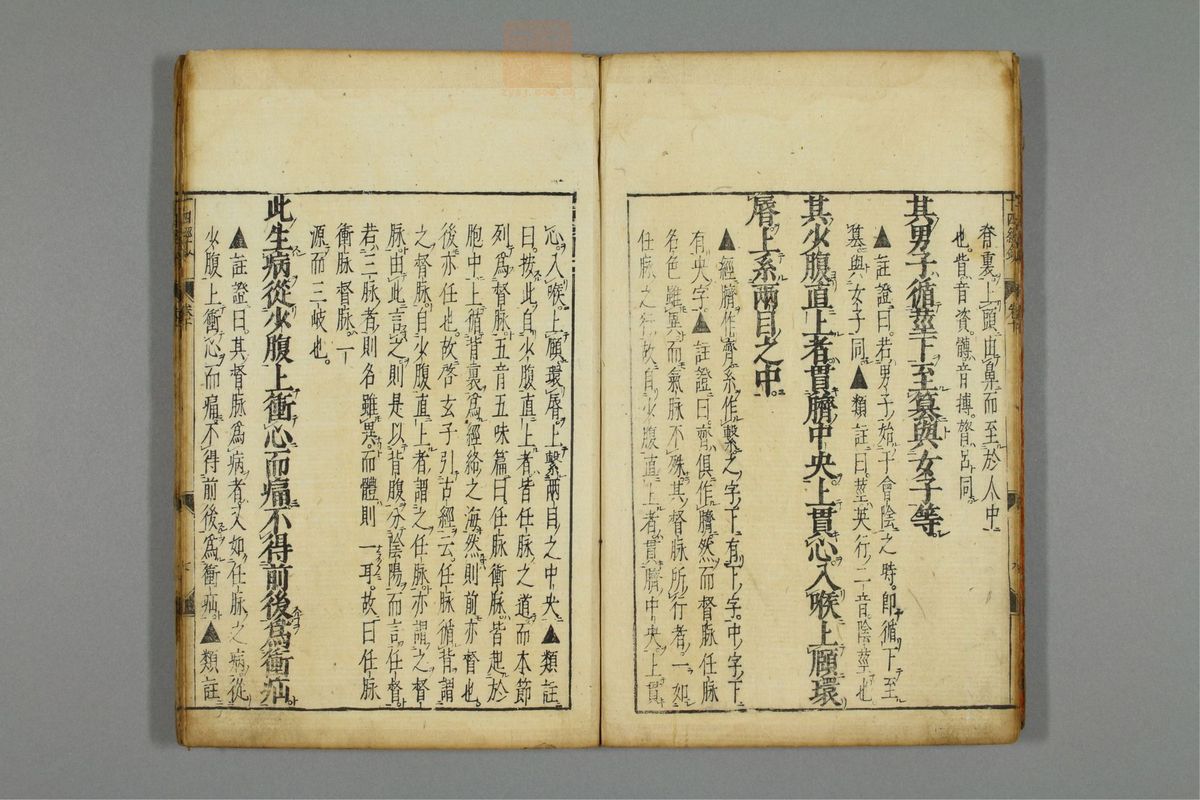 脊裏上頭由鼻而至於人中
也昔音資髆音搏膂呂同
其男子循莖下至簒與女子等
▲註證曰若男子始于會陰之時即循下至
簒與女子同▲類註曰莖英行二音陰莖也
其少腹直上者貫臍中央上貫心入喉上頤環
唇上系兩目之中
▲經臍作齊系作繫之字下有下字中字下
有央字▲註證曰齊俱作臍然而督脈任脈
名色雖異而氣脈不殊其督脈所行者一如
任脈之行故自少腹直上者貫臍中央上貫
心入喉上頤環唇上繫兩目之中央▲類註
曰按此自少腹直上者皆任脈之道而本節
列爲督脈五音五味篇曰任脈衝脈皆起於
胞中上循背裏爲經絡之海然則前亦督也
後亦任也故啓玄子引古經云任脈循背謂
之督脈自少腹直上者謂之任脈亦謂之督
脈由此言之則是以背腹分陰陽而言任督
若三脈者則名雖異而體則一耳故曰任脈
衝脈督脈一
源而三岐也
此生病從少腹上衝心而痛不得前後爲衝疝
▲註證曰其督脈爲病者又如任脈之病從
少腹上衝心而痛不得前後爲衝疝▲類註